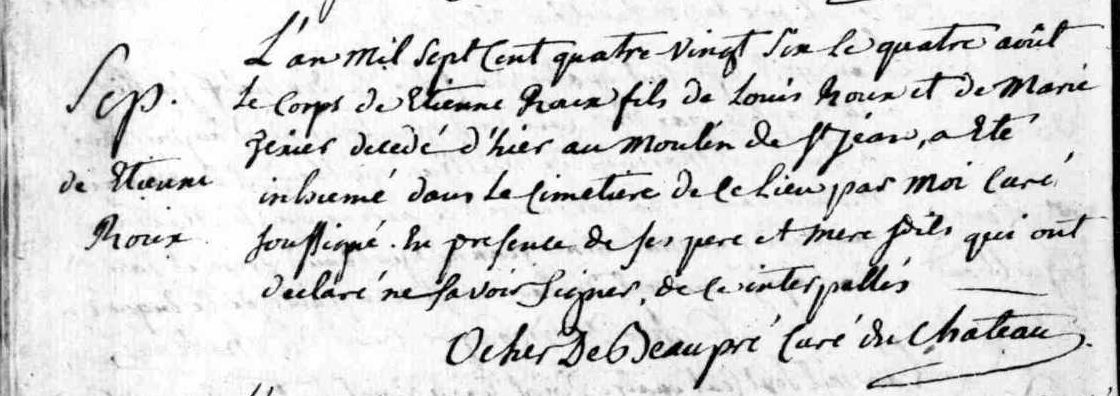 Sep.
de Etienne
Roux
L'an mil sept Cent quatre vingt six le quatre août
le Corps de Etienne Roux fils de Louis Roux et de Marie
decedé d'hier au Moulin de St Jean, a Eté
inhumé dans le Cimetiere de Ce lieu par Moi Curé
soussigné. En presence de ses pere et mere sdits qui ont
declaré ne savoir signer, de Ce interpellés
Ocher De Beaupré Curé du Chateau